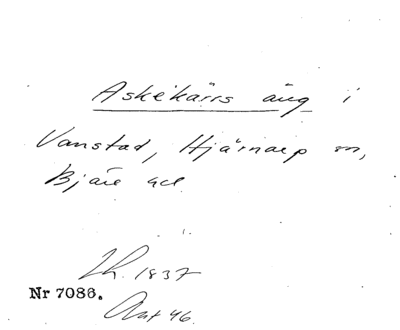 Askekärrs äng i
Vanstad, Hjärnarp sn,
Bjäre hd
Lh. 1837
Nr 7086.
Akt 46